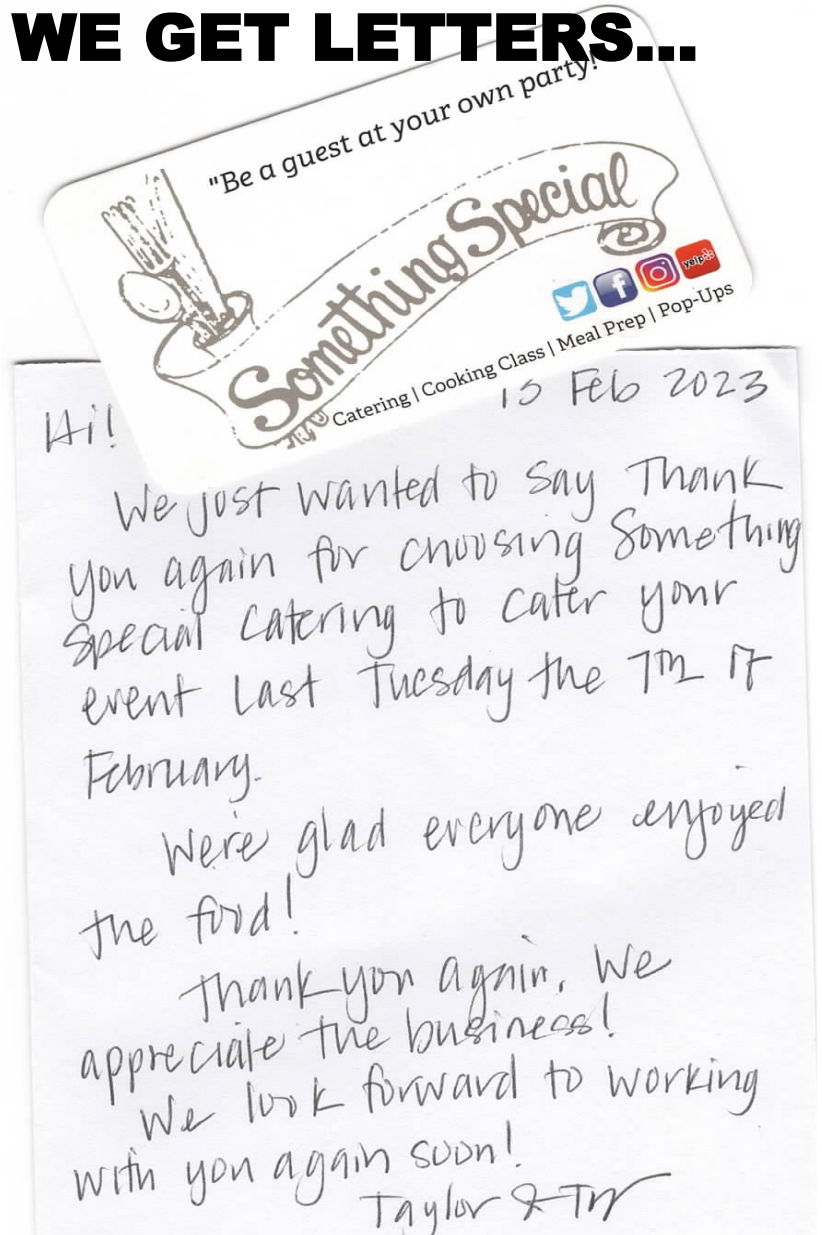 WE GET LETTERS...
"Be a guest at your own party!
Something Special
yelp
Catering | Cooking Class | Meal Prep | Pop-Ups
15 Feb 2023
Hi!
We just wanted to say Thank
you again for choosing Something
Special Catering to cater your
event last Tuesday the 7th of
February.
We're glad everyone enjoyed
the food!
Thank you again. We
appreciate the business!
We look forward to working
with you again soon!
Taylor &